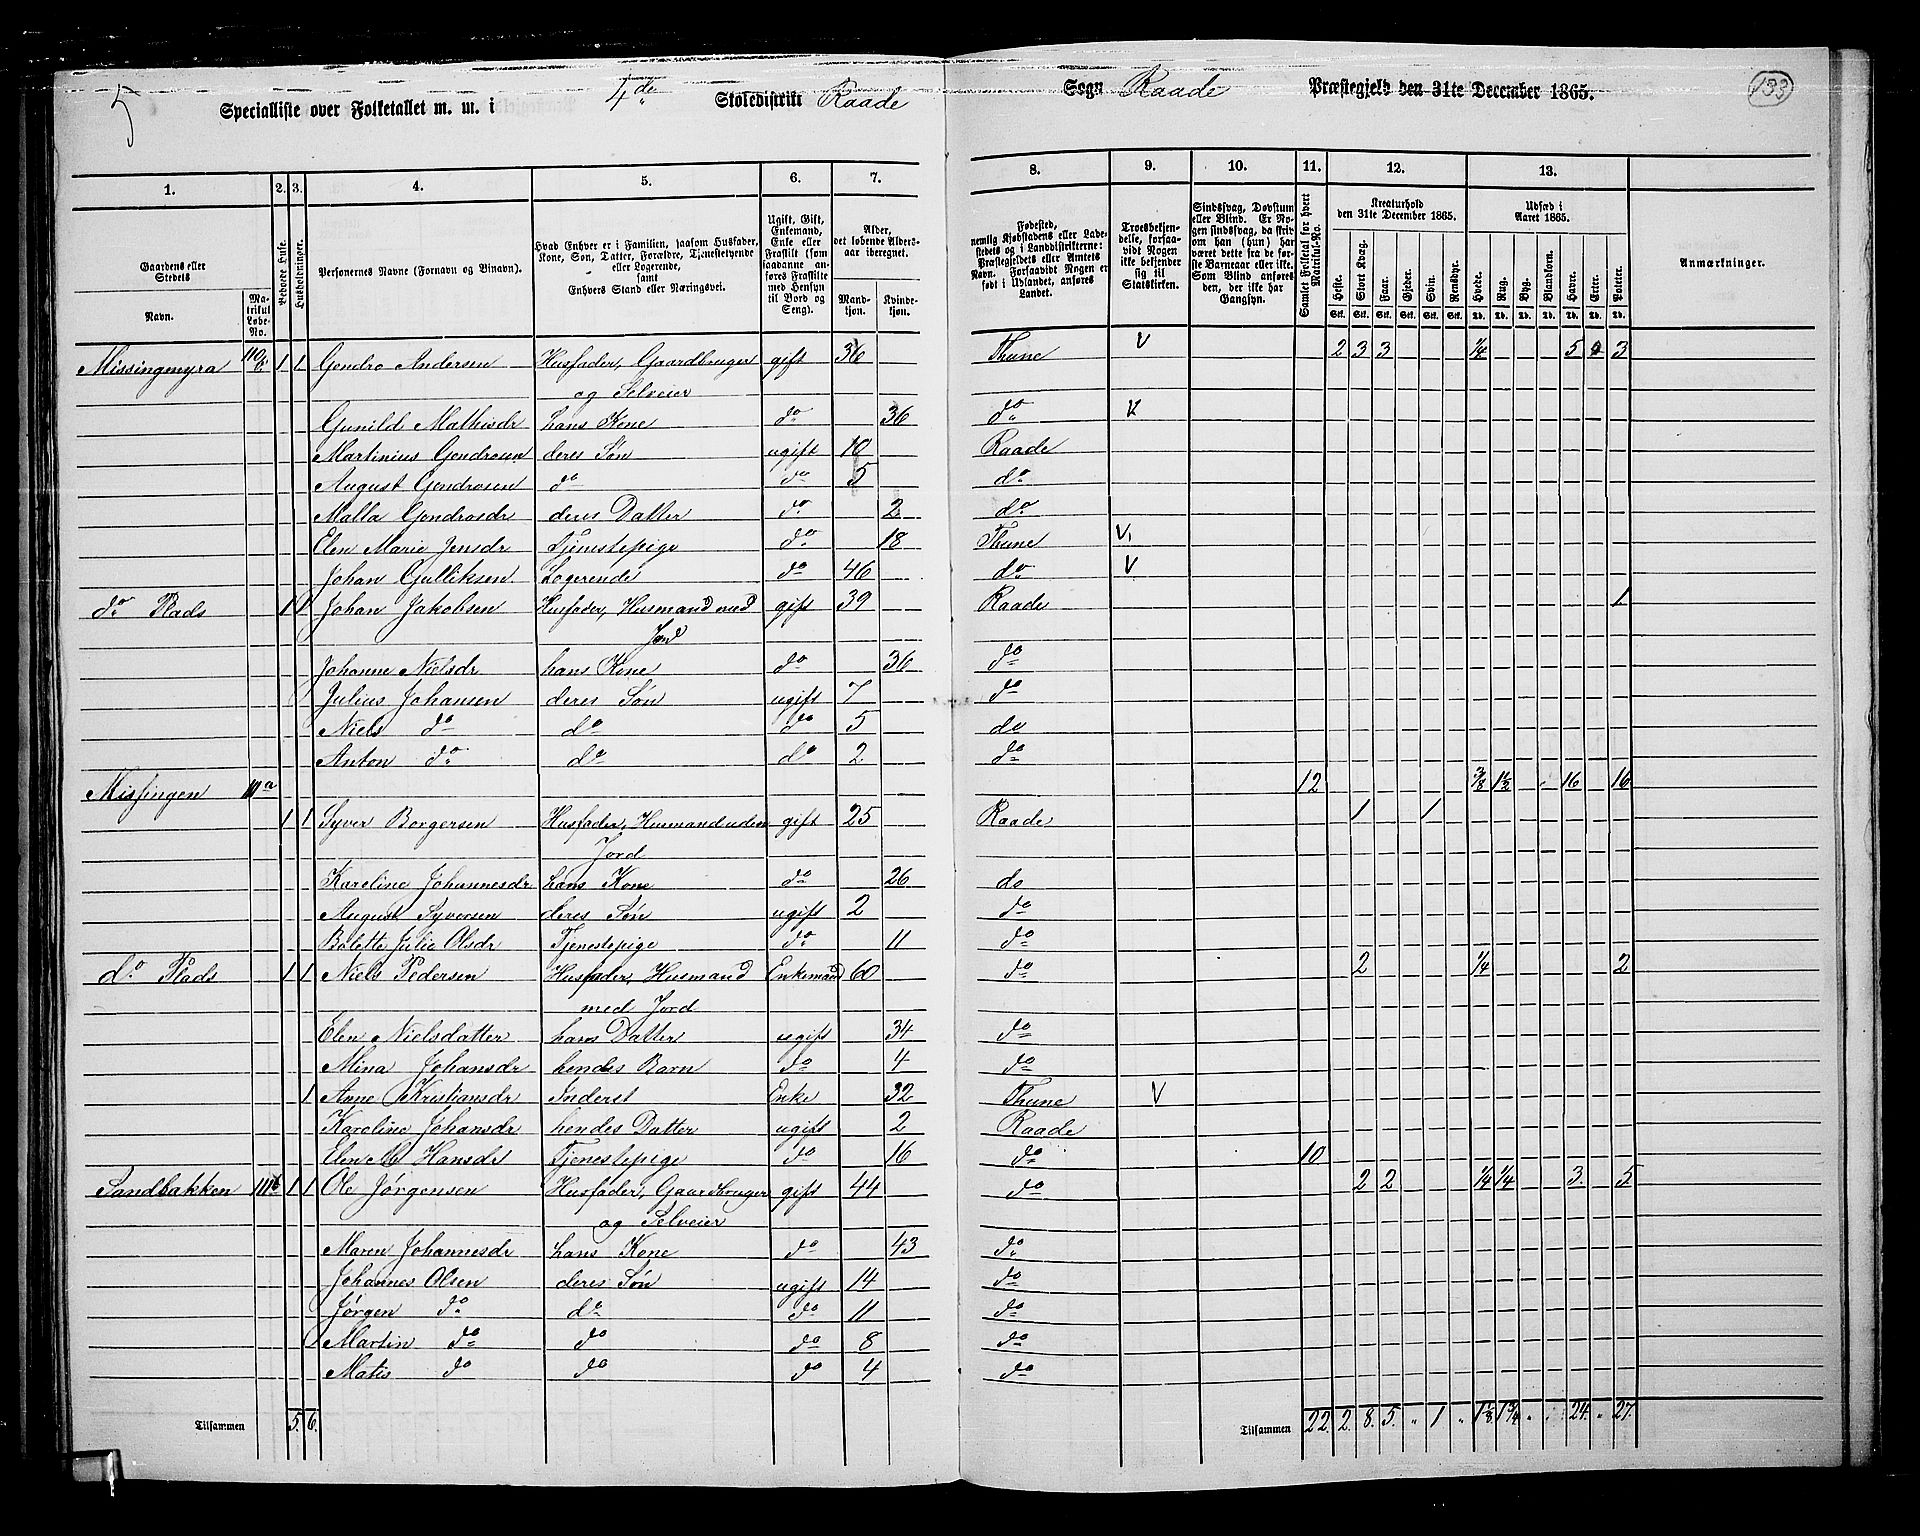 5
Specialliste over Folketallet m. m. i 4de Skoledistrikt Raade Sogn Raade Præstegjeld den 31te December 1865.
133
1. 2. 3. 4. 5. 6. 7. 8. 9. 10. 11. 12. 13.
Gaardens eller Stedets
Navn.
Matrikul Løbe-No.
Beboede Huse.
Husholdninger.
Personernes Navne (Fornavn og Tilnavn).
Hvad Enhver er i Familien, saasom Husfader, Kone, Søn, Datter, Forældre, Tjenestetyende eller Logerende,
samt
Enhvers Stand eller Næringsvei.
Ugift, Gift, Enkemand, Enke eller Fraskilt (som saadanne anføres Fraskilte med Hensyn til Bord og Seng).
Alder, det løbende Aldersaar iberegnet.
Mandkjøn. Kvindekjøn.
Fødested, nemlig Kjøbstadens eller Ladestedets og i Landdistrikterne: Præstegjeldets eller Amtets Navn. Forsaavidt Nogen er født i Udlandet, anføres Landet.
Troesbekjendelse, forsaavidt Nogen ikke bekjender sig til Statskirken.
Sindssvag, Døvstum eller Blind. Er Nogen sindssvag, da skriv om han (hun) har været dette fra de første Barneaar eller ikke. Som Blind anføres den, der ikke har Gangsyn.
Samlet Folketal for hvert Matrikul-No.
Kreaturhold den 31te December 1865.
Heste. Stort Kvæg. Faar. Gjeder. Svin. Rensdyr.
Udsæd i Aaret 1865.
Hvede. Rug. Byg. Blandkorn. Havre. Erter. Poteter.
Stk. Stk. Stk. Stk. Stk. Stk. Td. Td. Td. Td. Td. Td. Td.
Anmærkninger.
Missingmyra 110 1 1 Gendro Andersen Husfader, Gaardbruger gift 36 Thune V 2 3 3 1/4 5 3
og Selveier
Gunild Mathisdr hans Kone do 36 do V
Martinius Gendrosen deres Søn ugift 10 Raade
August Gendrosen do do 5 do
Malla Gendrosdr deres Datter do 2 do
Elen Marie Jensdr Tjenestepige do 18 Thune V
Johan Gulliksen Logerende do 46 do V
do Plads 1 1 Johan Jakobsen Husfader, Husmand med gift 39 Raade 1
Jord
Johanne Nielsdr hans Kone do 36 do
Julius Johansen deres Søn ugift 7 do
Niels do do do 5 do
Anton do do do 2 do
Missingen 111a 12 3/8 1 1/2 16 16
1 1 Syver Borgersen Husfader, Husmand uden gift 25 Raade 1 1
Jord
Karoline Johannesdr hans Kone do 26 do
August Syversen deres Søn ugift 2 do
Bolette Julie Olsdr Tjenestepige do 11 do
do Plads 1 1 Niels Pedersen Husfader, Husmand Enkemand 60 do 2 1/4 2
med Jord
Elen Nielsdatter hans Datter ugift 34 do
Mina Johansdr hendes Barn do 4 do
1 Anne Kristiansdr Inderst Enke 32 Thune V
Karoline Johansdr hendes Datter ugift 2 Raade
Elen M Hansdr Tjenestepige do 16 do 10
Sandbakken 111b 1 1 Ole Jørgensen Husfader, Gaardbruger gift 44 do 2 2 1/4 1/4 3 5
og Selveier
Maren Johannesdr hans Kone do 43 do
Johannes Olsen deres Søn ugift 14 do
Jørgen do do do 11 do
Martin do do do 8 do
Matis do do do 4 do
Tilsammen 5. 6. Tilsammen 22. 2. 8. 5. " 1 " 1 1/8 1 3/4 " " 24. " 27.